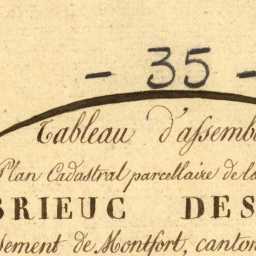 - 35 -
Tableau d'assemb
Plan Cadastral parcellaire de la
BRIEUC DES
sement de Montfort, canton